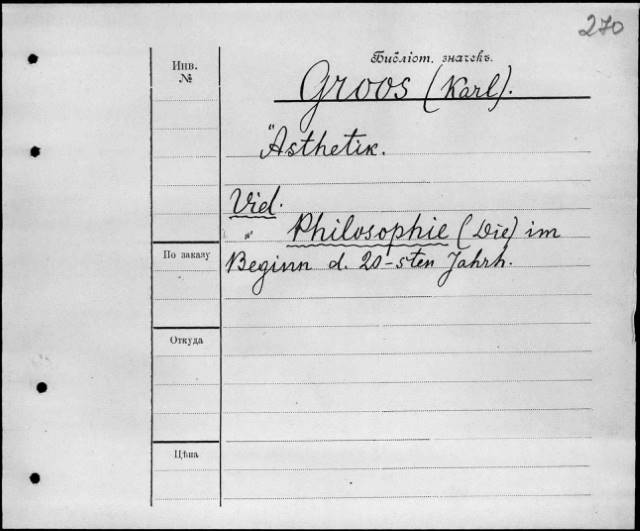 270
Инв. №
Библіот. значекъ.
Groos (Karl).
Ästhetik.
Vid.
Philosophie (Die) im
По заказу
Beginn d. 20-sten Jahrh.
Откуда
Цѣна